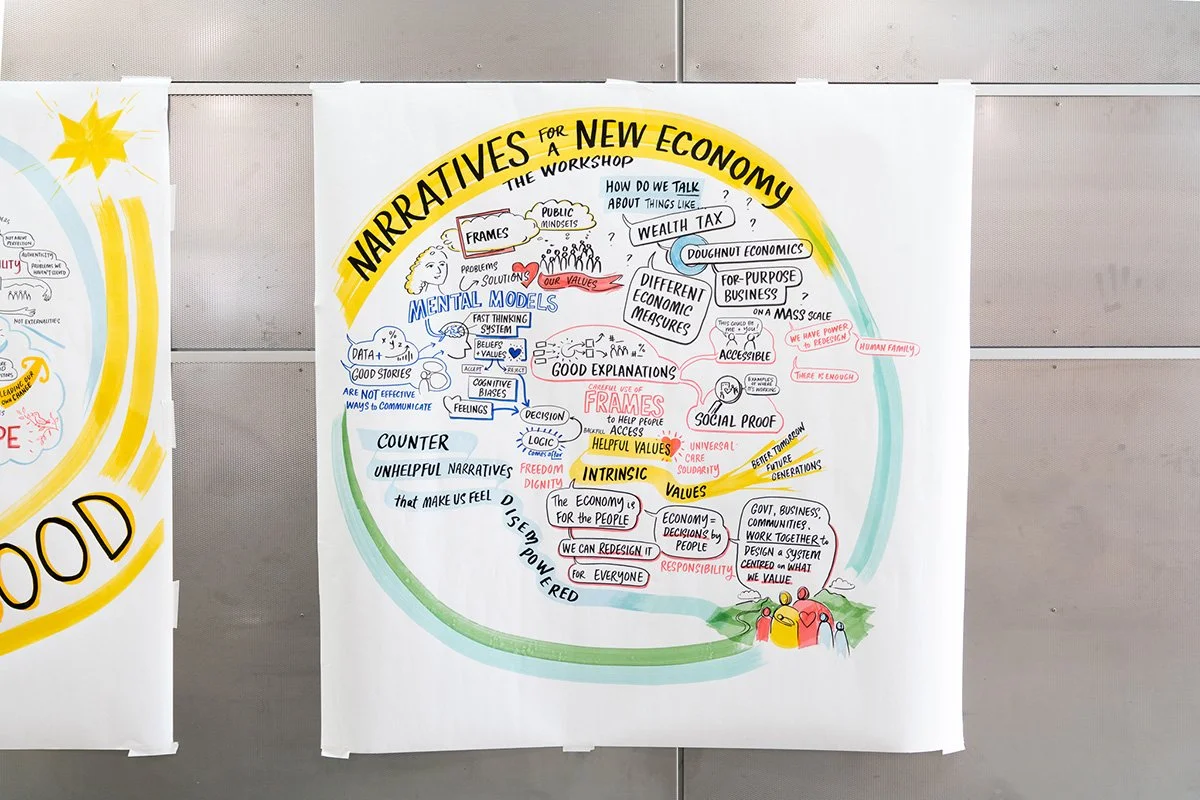 NARRATIVES FOR A NEW ECONOMY
THE WORKSHOP
HOW DO WE TALK
ABOUT THINGS LIKE...
WEALTH TAX
DOUGHNUT ECONOMICS
FOR-PURPOSE
BUSINESS
DIFFERENT
ECONOMIC
MEASURES
ON A MASS SCALE
FRAMES
PUBLIC
MINDSETS
PROBLEMS
SOLUTIONS
OUR VALUES
MENTAL MODELS
FAST THINKING
SYSTEM
BELIEFS
+ VALUES
ACCEPT
REJECT
COGNITIVE
BIASES
FEELINGS
DECISION
LOGIC
comes after
DATA +
GOOD STORIES
ARE NOT EFFECTIVE
WAYS to COMMUNICATE
GOOD EXPLANATIONS
THIS COULD BE
ME + YOU!
ACCESSIBLE
WE HAVE POWER
to REDESIGN
HUMAN FAMILY
THERE IS ENOUGH
EXAMPLES
OF WHERE
IT'S WORKING
SOCIAL PROOF
CAREFUL USE OF
FRAMES
to HELP PEOPLE
ACCESS
HELPFUL VALUES
UNIVERSAL
CARE
SOLIDARITY
FREEDOM
DIGNITY
INTRINSIC
VALUES
BETTER TOMORROW
FUTURE
GENERATIONS
COUNTER
UNHELPFUL NARRATIVES
that MAKE US FEEL
DISEMPOWERED
The ECONOMY is
FOR the PEOPLE
WE CAN REDESIGN IT
FOR EVERYONE
ECONOMY =
DECISIONS by
PEOPLE
RESPONSIBILITY
GOVT, BUSINESS,
COMMUNITIES.
WORK TOGETHER to
DESIGN A SYSTEM
CENTRED on WHAT
WE VALUE
NOT ABOVE
PERFECTION
AUTHENTICITY
PROBLEMS WE
HAVEN'T SOLVED
NOT EXTERNALITIES
LEADING OUR
OWN CHANGE
OOD